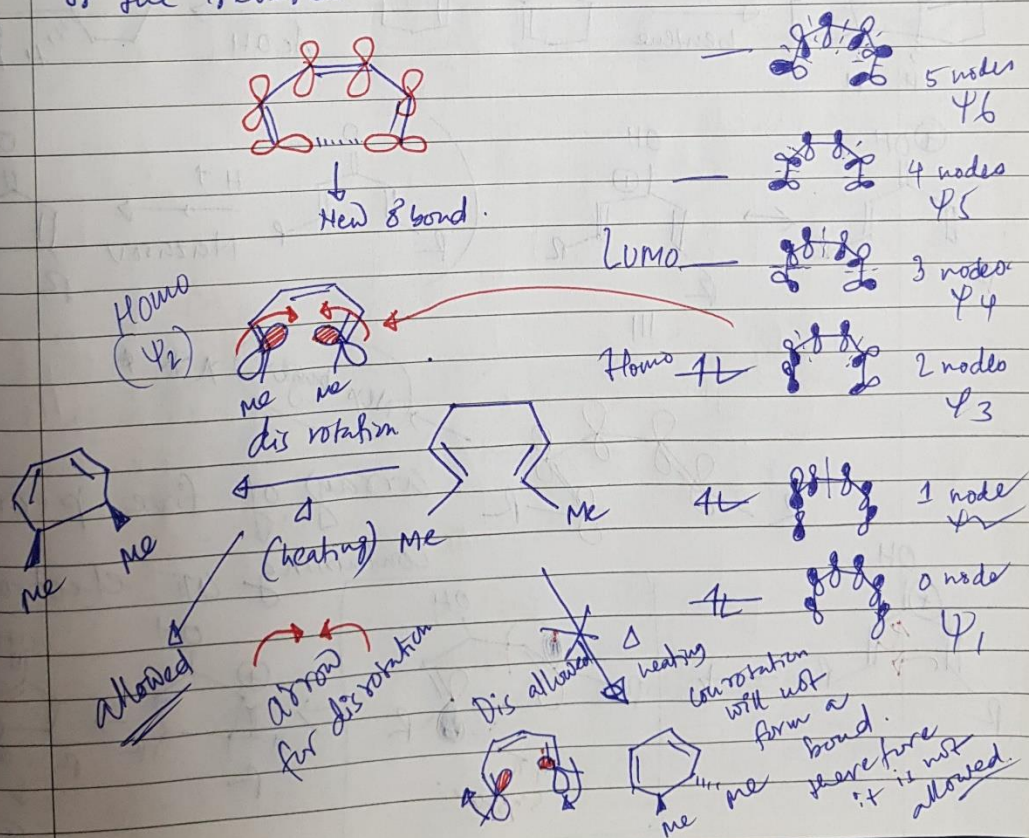 New 8 bond.
5 nodes
Ψ6
4 nodes
Ψ5
LUMO
3 nodes
Ψ4
Homo
(Ψ2)
Homo
2 nodes
Ψ3
Me Me
dis rotation
Δ
(heating)
Me Me
Me Me
1 node
Ψ2
0 node
Ψ1
allowed
arrow
for disrotation
Dis allowed
Δ
heating
conrotation
will not
form a
bond.
therefore
it is not
allowed.
Me Me